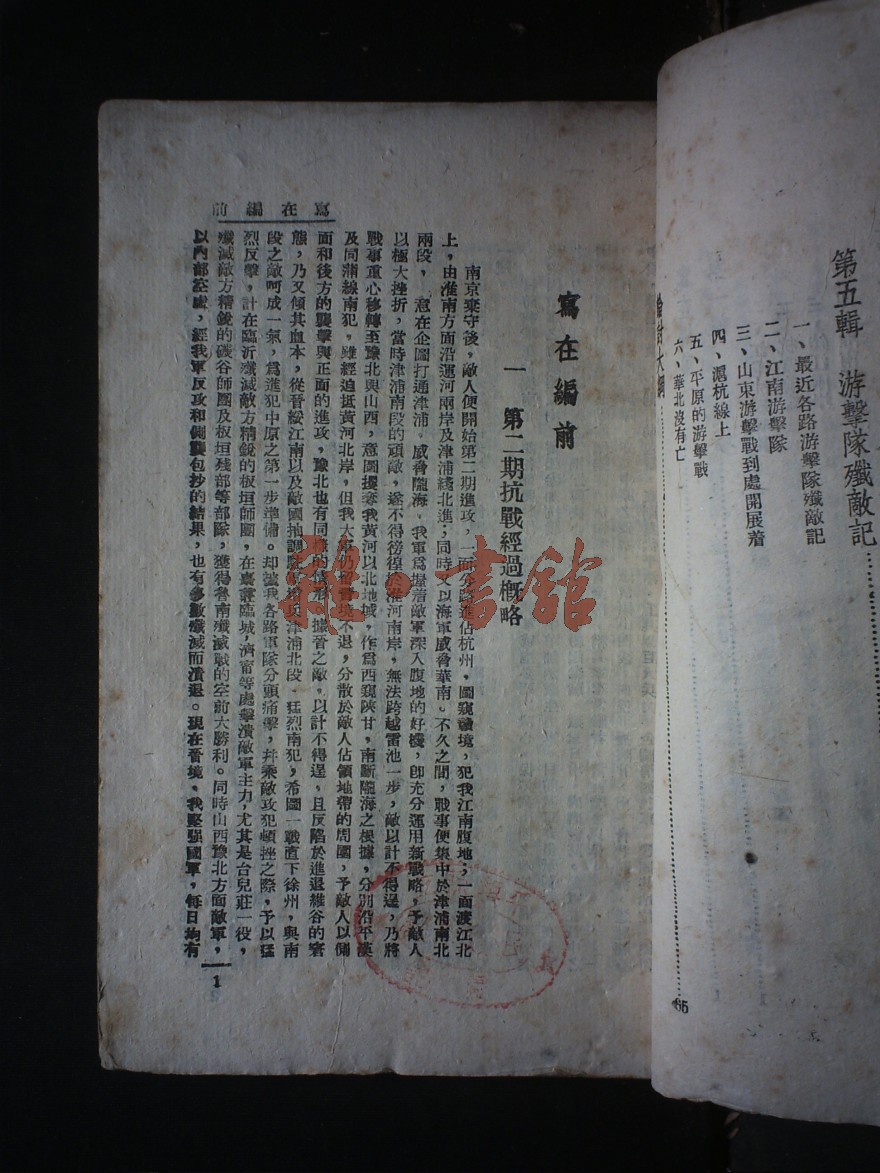 第五輯　游擊隊殲敵記……65
一、最近各路游擊隊殲敵記
二、江南游擊隊
三、山東游擊戰到處開展着
四、滬杭線上
五、平原的游擊戰
六、華北沒有亡
討大綱……
寫在編前
寫在編前
一　第二期抗戰經過概略
南京棄守後，敵人便開始第二期進攻，一面分路進佔杭州，圖窺贛境，犯我江南腹地，一面渡江北
上，由淮南方面沿運河兩岸及津浦綫北進；同時又以海軍威脅華南。不久之間，戰事便集中於津浦南北
兩段，意在企圖打通津浦，威脅隴海。我軍爲握着敵軍深入腹地的好機，卽充分運用新戰略，予敵人
以極大挫折，當時津浦南段的頑敵，遂不得徬徨於淮河南岸，無法跨越雷池一步，敵以計不得逞，乃將
戰事重心移轉至豫北與山西，意圖攫奪我黃河以北地域，作爲西窺陝甘，南斷隴海之根據，分別沿平漢
及同蒲線南犯，雖經迫抵黃河北岸，但我大軍仍留晉境不退，分散於敵人佔領地帶的周圍，予敵人以側
面和後方的襲擊與正面的進攻，豫北也有同樣的情形，據晉之敵，以計不得逞，且反陷於進退維谷的窘
態，乃又傾其血本，從晉綏江南以及敵國抽調 津浦北段，猛烈南犯，希圖一戰直下徐州，與南
段之敵呵成一氣，爲進犯中原之第一步準備。却被我各路軍隊分頭痛擊，幷乘敵攻犯頓挫之際，予以猛
烈反擊，計在臨沂殲滅敵方精銳的板垣師團，在棗莊臨城，濟甯等處擊潰敵軍主力，尤其是台兒莊一役，
殲滅敵方精銳的磯谷師團及板垣殘部等部隊，獲得魯南殲滅戰的空前大勝利。同時山西豫北方面敵軍，
以內部空虛，經我軍反攻和側襲包抄的結果，也有多數殲滅而潰退。現在晉境，我堅强國軍，每日均有
1
書館